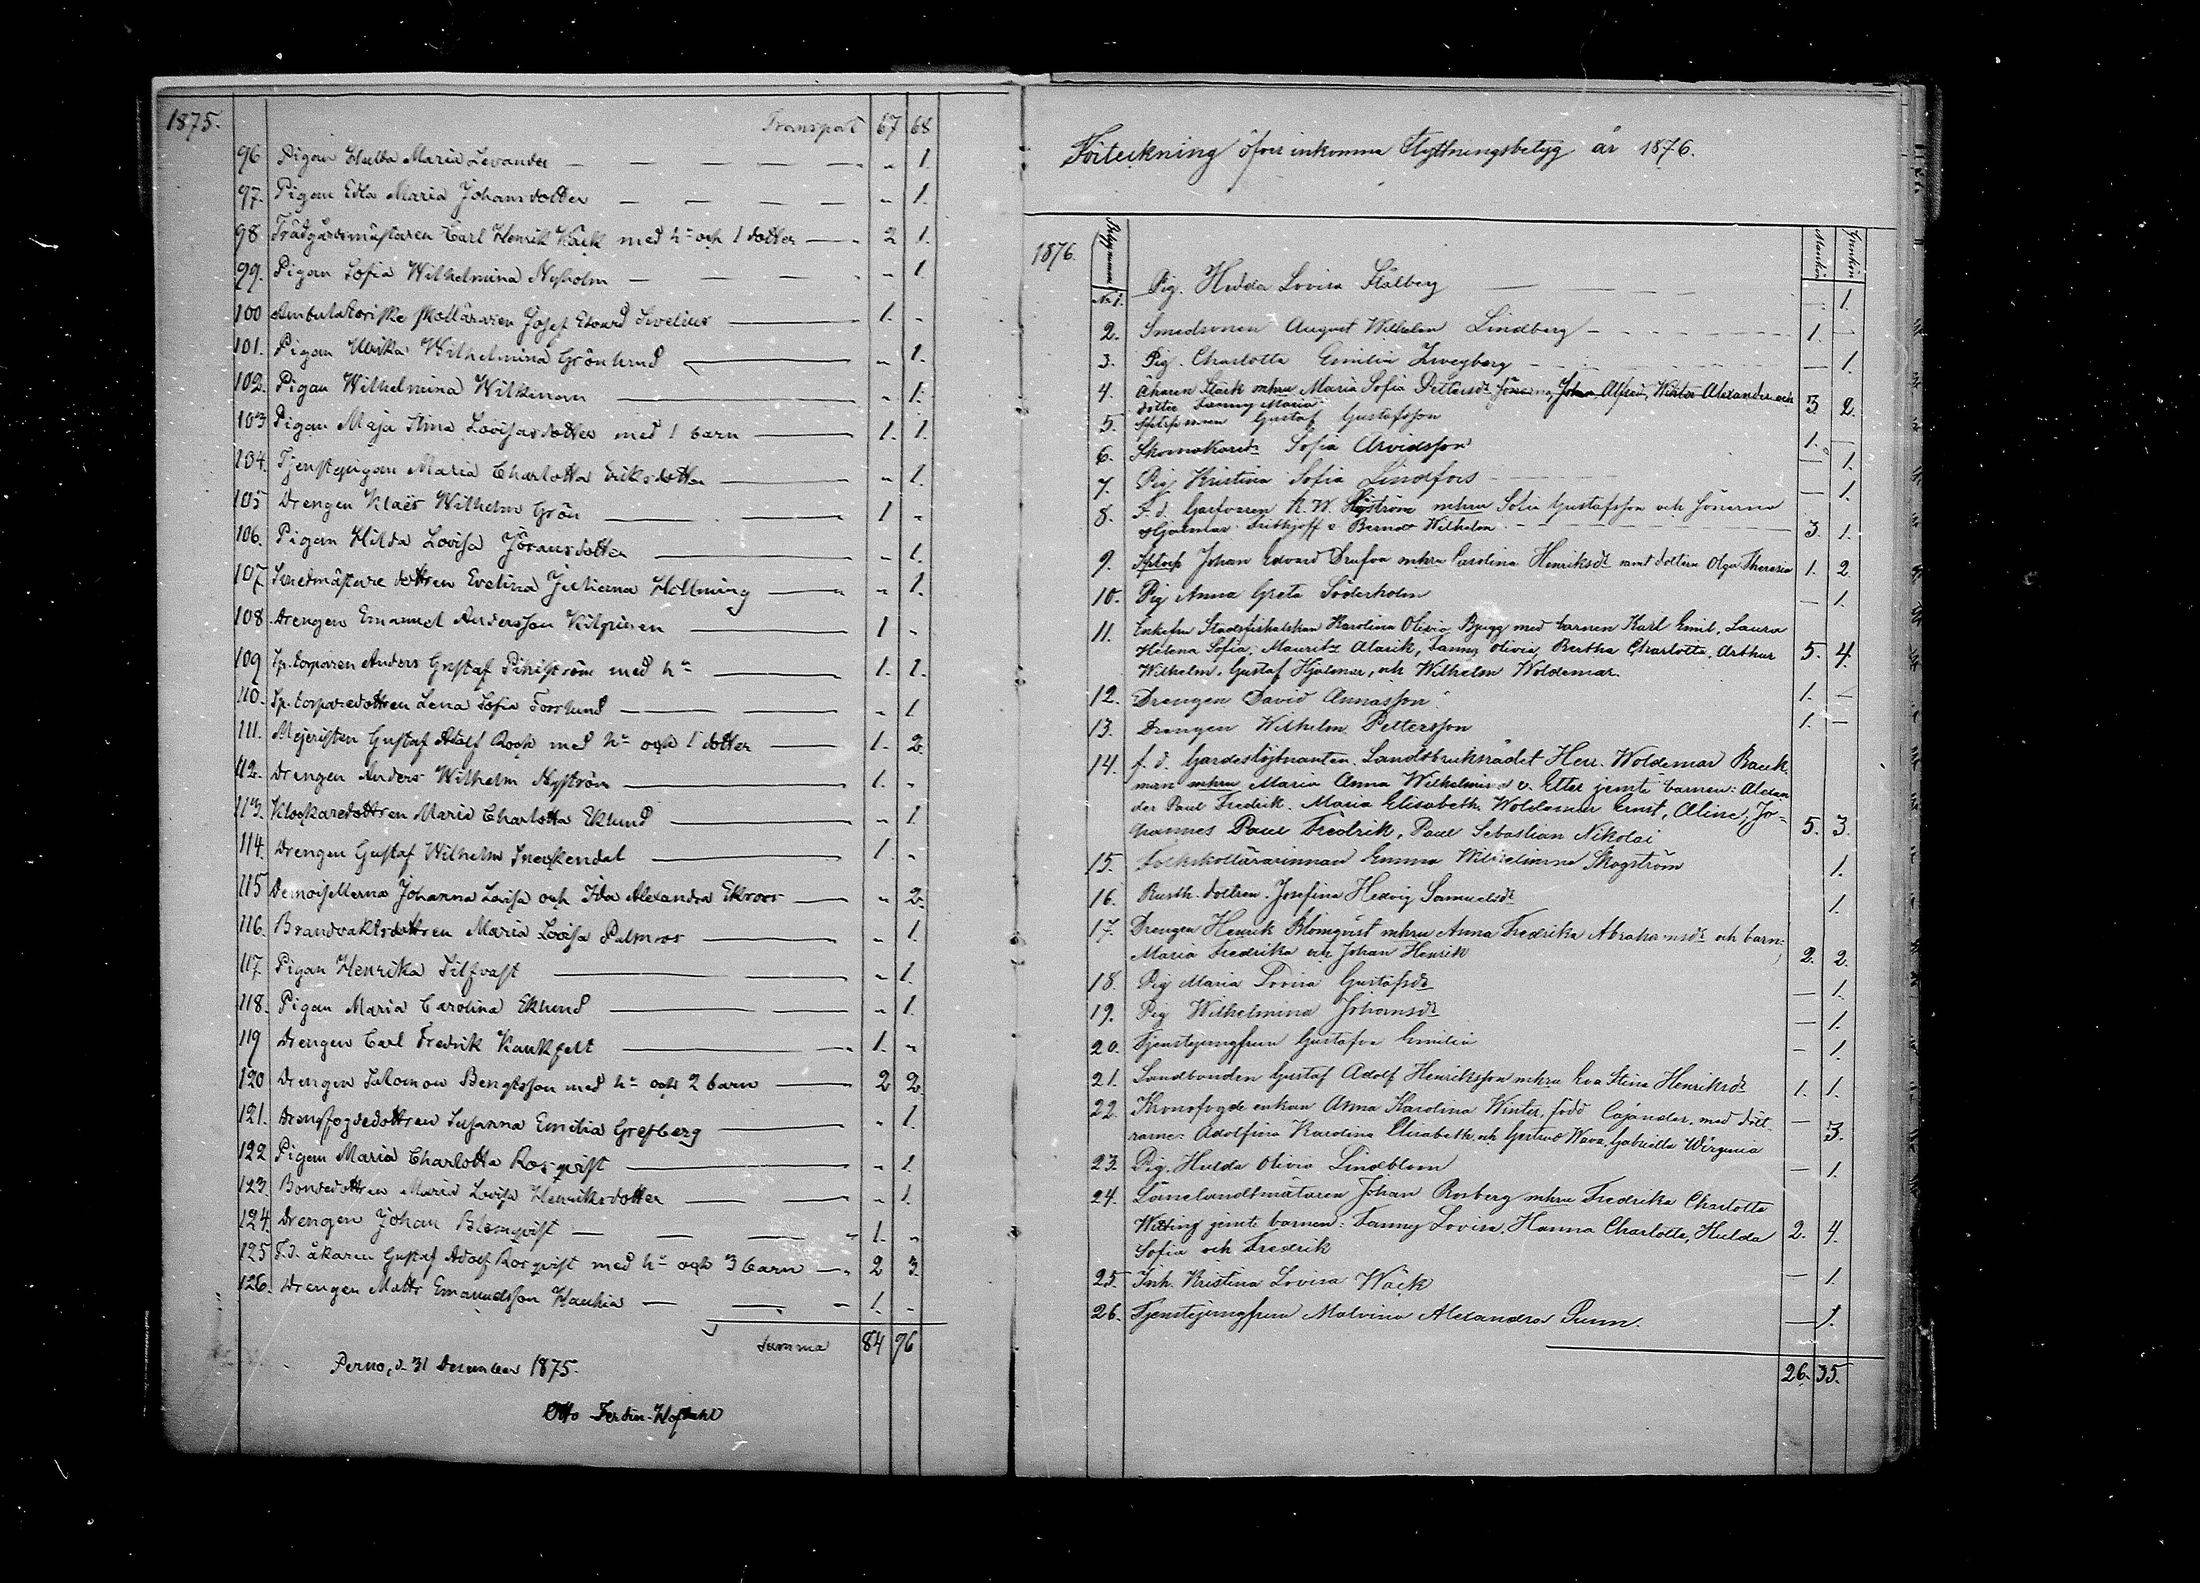 1875.
Transport 67 68
96 Pigan Hulda Maria Levander — — — — „ 1
97. Pigan Edla Maria Johansdotter — — — — „ 1.
98 Trädgårdsmästaren Carl Henrik Wäck med h:u och 1 dotter — 2 1.
99. Pigan Sofia Wilhelmina Nyholm — — — „ 1
100 Ambulatoriske skolläraren Josef Edvard Sivelius — 1. „
101. Pigan Ulrika Wilhelmina Grönlund — „ 1.
102. Pigan Wilhelmina Wilkman — „ 1.
103 Pigan Maja Stina Lovisasdotter med 1 barn — 1. 1.
104. Tjenstepigan Maria Charlotta Eriksdotter — „ 1.
105 Drengen Klaës Wilhelm Grön — 1 „
106. Pigan Hilda Lovisa Göransdotter — „ 1.
107. Smedmästare dottren Evelina Juliana Hollming — „ 1.
108. Drengen Emanuel Andersson Kilpinen — 1 „
109 Sp. torparen Anders Gustaf Pihlström med h:u — 1. 1.
110. Sp. torparedottren Lena Sofia Forslund — „ 1
111. Mejeristen Gustaf Adolf Koch med h:u och 1 dotter — 1. 2.
112. Drengen Anders Wilhelm Nyström — 1. „
113. Klockaredottren Maria Charlotta Eklund — „ 1.
114. Drengen Gustaf Wilhelm — 1. „
115 Demoisellerna Johanna Lovisa och Ida Alexandra Ekroos — „ 2.
116. Brandvaktsdottren Maria Lovisa Palmroos — „ 1.
117. Pigan Henrika Silfvast — „ 1.
118. Pigan Maria Carolina Eklund — „ 1.
119 Drengen Carl Fredrik — 1. „
120 Drengen Salomon Bengtsson med h:u och 2 barn — 2 2.
121. Susanna Emilia Grefberg — „ 1.
122 Pigan Maria Charlotta Rosqvist — „ 1.
123. Bondedottren Maria Lovisa Henriksdotter — „ 1.
124. Drengen Johan Blomqvist — 1. „
125 F.d. åkaren Gustaf Adolf Rosqvist med h:u och 3 barn — 2 3.
126. Drengen Matts Emanuelsson Kauhia — 1. „
Summa 84 96
Perno, d. 31 December 1875.
Otto Ferdin.
Förteckning öfver inkomna Flyttningsbetyg år 1876.
1876. Mankön Qvinkön
No 1. Pig. Hedda Lovisa Stålberg — 1.
2. Smedsonen August Wilhelm Lindberg 1. —
3. Pig. Charlotta Emilia Zweyberg — 1.
4. Åkaren Stark mhru Maria Sofia Pettersdr, sönerna Johan Alfred, Wiktor Alexander och
dotter Fanny Maria 3. 2.
5. Gustaf Gustafsson 1. —
6. Skomakaredr Sofia Arvidsson — 1.
7. Pig Kristina Sofia Lindfors — 1.
8. F. d. Garfvaren K. W. Nyström mhru Sofia Gustafsson och sönerna
Hjalmar Frithjoff o Berndt Wilhelm 3. 1.
9. Johan Edvard Drufva mhru Carolina Henriksdr samt dottern Olga Theresia 1. 2.
10. Pig Anna Greta Söderholm — 1.
11. Enkefru Stadsfiskalskan Karolina Olivia Bygg med barnen Karl Emil, Laura
Helena Sofia, Mauritz Alarik, Fanny Olivia, Bertha Charlotta, Arthur
Wilhelm, Gustaf Hjalmar, och Wilhelm Woldemar. 5. 4.
12. Drengen David Annasson 1. —
13. Drengen Wilhelm Pettersson 1. —
14. f. d. Gardeslöjtnanten Landtbruksrådet Herr Woldemar Back-
man mhru Maria Anna Wilhelmina v. Etter jemte barnen: Alexan
der Paul Fredrik, Maria Elisabeth, Woldemar Ernst, Aline, Jo-
hannes Paul Fredrik, Paul Sebastian Nikolai 5. 3.
15. Folkskollärarinnan Emma Wilhelmina Skogström 1.
16. Rusth. dottren Josefina Hedvig Samuelsdr 1.
17. Drengen Henrik Blomqvist mhru Anna Fredrika Abrahamsdr och barn:
Maria Fredrika och Johan Henrik 2. 2.
18. Pig Maria Lovisa Gustafsdr — 1.
19. Pig Wilhelmina Johansdr — 1.
20. Tjenstejungfrun Gustafva Emilia — 1.
21. Landbonden Gustaf Adolf Henriksson mhru Eva Stina Henriksdr 1. 1.
22. Kronofogde enkan Anna Karolina Winter, född Cajander, med dött-
rarne: Adolfina Karolina Elisabeth och Gertrud Wava Gabriella Wirginia — 3.
23. Pig. Hulda Olivia Lindblom — 1.
24. Länelandtmätaren Johan Rosberg mhru Fredrika Charlotta
Witting jemte barnen: Fanny Lovisa, Hanna Charlotta, Hulda 2. 4.
Sofia och Fredrik
25. Inh. Kristina Lovisa Wäck — 1.
26. Tjenstejungfrun Malvina Alexandra Sunn. — 1.
26. 35.